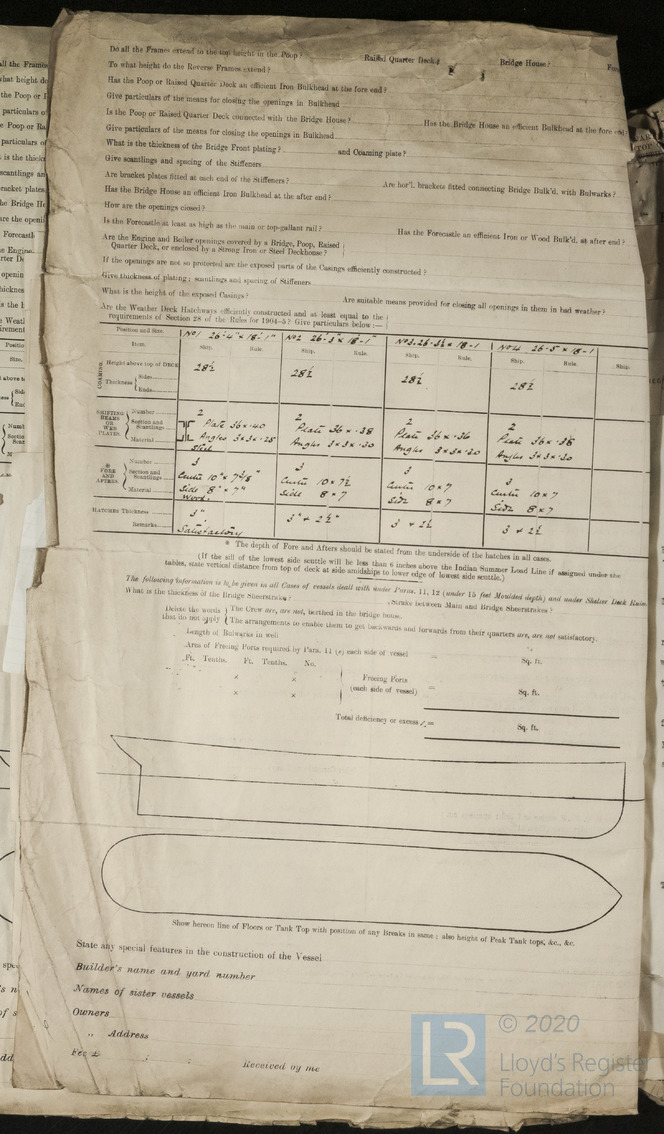 Do all the Frames extend to the top height in the Poop? Raised Quarter Deck? Bridge House?
To what height do the Reverse Frames extend?
Has the Poop or Raised Quarter Deck an efficient Iron Bulkhead at the fore end?
Give particulars of the means for closing the openings in Bulkhead
Is the Poop or Raised Quarter Deck connected with the Bridge House? Has the Bridge House an efficient Bulkhead at the fore end
Give particulars of the means for closing the openings in Bulkhead
What is the thickness of the Bridge Front plating? and Coaming plate?
Give scantlings and spacing of the Stiffeners
Are bracket plates fitted at each end of the Stiffeners? Are hor'l. brackets fitted connecting Bridge Bulk'd. with Bulwarks?
Has the Bridge House an efficient Iron Bulkhead at the after end?
How are the openings closed?
Is the Forecastle at least as high as the main or top-gallant rail? Has the Forecastle an efficient Iron or Wood Bulk'd. at after end?
Are the Engine and Boiler openings covered by a Bridge, Poop, Raised
Quarter Deck, or enclosed by a Strong Iron or Steel Deckhouse?
If the openings are not so protected are the exposed parts of the Casings efficiently constructed?
Give thickness of plating; scantlings and spacing of Stiffeners
What is the height of the exposed Casings? Are suitable means provided for closing all openings in them in bad weather?
Are the Weather Deck Hatchways efficiently constructed and at least equal to the
requirements of Section 28 of the Rules for 1904-5? Give particulars below:—
Position and Size. No1 26'-4" x 18'-1" No2 26'-3" x 18'-1" No3. 26-3½ x 18-1 No4 26-5" x 18-1
Item. Ship. Rule. Ship. Rule. Ship. Rule. Ship. Rule. Ship.
COAMING Height above top of DECK 28½ 28½ 28½ 28½
Thickness Sides
Ends
SHIFTING BEAMS OR WEB PLATES. Number 2 2 2 2
Section and Scantlings Plate 36 x .40 Plate 36 x .38 Plate 36 x .36 Plate 36 x .38
Angles 3x3x.28 Angles 3x3x.30 Angles 3x3x.30 Angles 3x3x.30
Material Steel
* FORE AND AFTERS. Number 3 3 3 3
Section and Scantlings Centre 10" x 7⅛" Centre 10 x 7½ Centre 10 x 7 Centre 10 x 7
Side 8" x 7" Side 8 x 7 Side 8 x 7 Side 8 x 7
Material Wood.
HATCHES Thickness 3" 3" & 2½" 3 & 2½ 3 & 2½
Remarks. Satisfactory
* The depth of Fore and Afters should be stated from the underside of the hatches in all cases.
(If the sill of the lowest side scuttle will be less than 6 inches above the Indian Summer Load Line if assigned under the
tables, state vertical distance from top of deck at side amidships to lower edge of lowest side scuttle.)
The following information is to be given in all Cases of vessels dealt with under Paras. 11, 12 (under 15 feet Moulded depth) and under Shelter Deck Rules
What is the thickness of the Bridge Sheerstrake? , Strake between Main and Bridge Sheerstrakes?
Delete the words that do not apply The Crew are, are not, berthed in the bridge house.
The arrangements to enable them to get backwards and forwards from their quarters are, are not satisfactory.
Length of Bulwarks in well
Area of Freeing Ports required by Para. 11 (e) each side of vessel = Sq. ft.
Ft. Tenths. Ft. Tenths. No.
x x Freeing Ports
x x (each side of vessel) = Sq. ft.
Total deficiency or excess = Sq. ft.
Show hereon line of Floors or Tank Top with position of any Breaks in same; also height of Peak Tank tops, &c., &c.
State any special features in the construction of the Vessel
Builder's name and yard number
Names of sister vessels
Owners
„ Address
Fee £ : : Received by me
LR © 2020
Lloyd's Register
Foundation